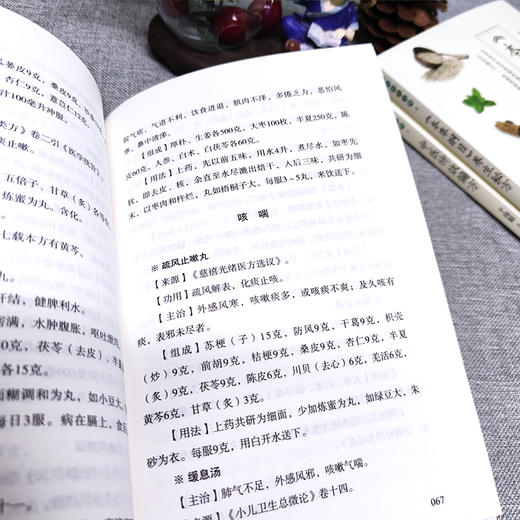 蒌皮9克，桑皮9克，
杏仁9克，薏苡仁12克
汁100毫升冲服。
类方》卷二引《医学统旨》
五倍子、甘草（炙）各等
炼蜜为丸。含化。
七载本方有黄芩。
肝结，健脾利水。
胀满，水肿腹胀，呕吐泄泻
0克，茯苓（去皮）、半夏
各15克。
面糊调和为丸，如小豆大，
每日3服。病在膈上，食后
胶气痞，气道不利，饮食进退，肌肉不泽，多倦乏力，恶怕风
寒，秦中清涕。
【组成】厚朴、生姜各500克，大枣100枚，半夏250克，陈
皮60克，人参、白术、白茯苓各200克。
【用法】上药，先以前五味，用水4升，煮令水尽，如枣先
软，即去皮、核，余直至水尽漉出焙干，入后三味，共研为细
末，以枣肉和杵烂，丸如梧桐子大。每服3～5丸，米饮送下。
咳 喘
※ 疏风止嗽丸
【来源】《慈禧光绪医方选议》。
【功用】疏风解表，化痰止咳。
【主治】外感风寒，咳嗽痰多，或咳痰不爽；及久咳有
痰，表邪未尽者。
【组成】苏梗（子）15克，防风9克，干葛9克，枳壳
（炒）9克，前胡9克，桔梗9克，桑皮9克，杏仁9克，半夏
（炙）9克，茯苓9克，陈皮6克，川贝（去心）6克，羌活6克，
黄芩6克，甘草（炙）3克。
【用法】上药共研为细面，少加炼蜜为丸，如绿豆大，朱
砂为衣。每服9克，用白开水送下。
※ 缓息汤
【主治】肺气不足，外感风邪，咳嗽气喘。
【来源】《小儿卫生总微论》卷十四。
067